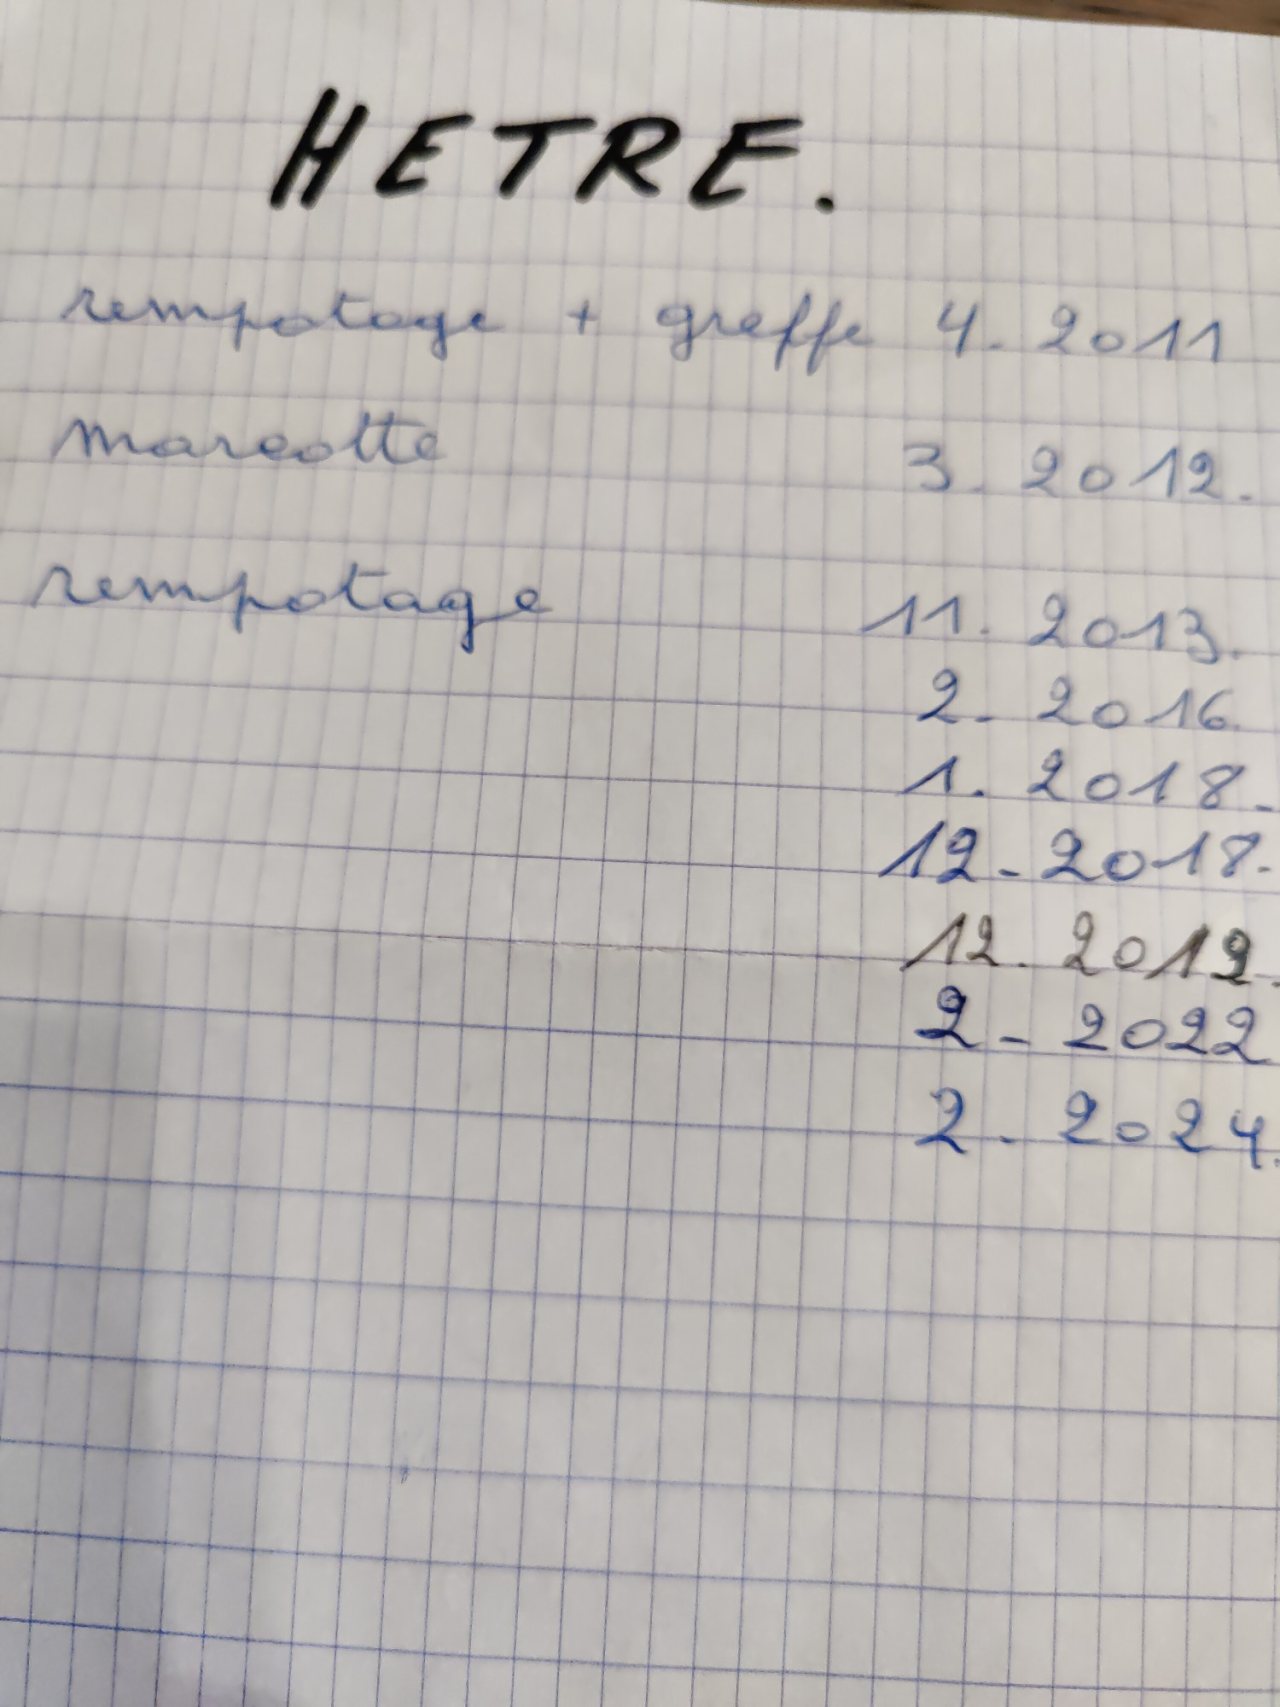 HETRE.
rempotage + greffe 4. 2011
marcotte 3. 2012.
rempotage 11. 2013.
2. 2016.
1. 2018.
12-2018.
12. 2019.
2- 2022
2. 2024.